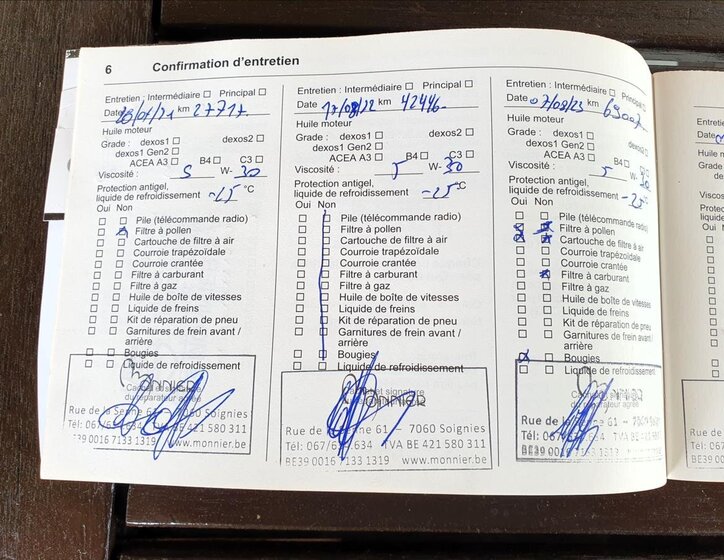 6 Confirmation d'entretien
Entretien : Intermédiaire Principal
Date km 2771
Huile moteur
Grade : dexos1 dexos2
dexos1 Gen2
ACEA A3 B4 C3
Viscosité : 5 W- 30
Protection antigel,
liquide de refroidissement -25 °C
Oui Non
Pile (télécommande radio)
Filtre à pollen
Cartouche de filtre à air
Courroie trapézoïdale
Courroie crantée
Filtre à carburant
Filtre à gaz
Huile de boîte de vitesses
Liquide de freins
Kit de réparation de pneu
Garnitures de frein avant /
arrière
Bougies
Liquide de refroidissement
MONNIER
Rue de la 7060 Soignies
Tél: 067/ 421 580 311
BE39 0016 7133 1319 www.monnier.be
Entretien : Intermédiaire Principal
Date 17/08/22 km 42446
Huile moteur
Grade : dexos1 dexos2
dexos1 Gen2
ACEA A3 B4 C3
Viscosité : 5 W- 30
Protection antigel,
liquide de refroidissement -25 °C
Oui Non
Pile (télécommande radio)
Filtre à pollen
Cartouche de filtre à air
Courroie trapézoïdale
Courroie crantée
Filtre à carburant
Filtre à gaz
Huile de boîte de vitesses
Liquide de freins
Kit de réparation de pneu
Garnitures de frein avant /
arrière
Bougies
Liquide de refroidissement
MONNIER
Rue de 61 - 7060 Soignies
Tél: 067/ TVA BE 421 580 311
BE39 0016 7133 1319 www.monnier.be
Entretien : Intermédiaire Principal
Date 07/08/23 km 69007
Huile moteur
Grade : dexos1 dexos2
dexos1 Gen2
ACEA A3 B4 C3
Viscosité : 5 W- 30
Protection antigel,
liquide de refroidissement -25 °C
Oui Non
Pile (télécommande radio)
Filtre à pollen
Cartouche de filtre à air
Courroie trapézoïdale
Courroie crantée
Filtre à carburant
Filtre à gaz
Huile de boîte de vitesses
Liquide de freins
Kit de réparation de pneu
Garnitures de frein avant /
arrière
Bougies
Liquide de refroidissement
MONNIER
Rue de la 61 - 7060 Soignies
Tél: 067/ TVA BE 421 580 311
BE39 0016 7133 1319 www.monnier.be